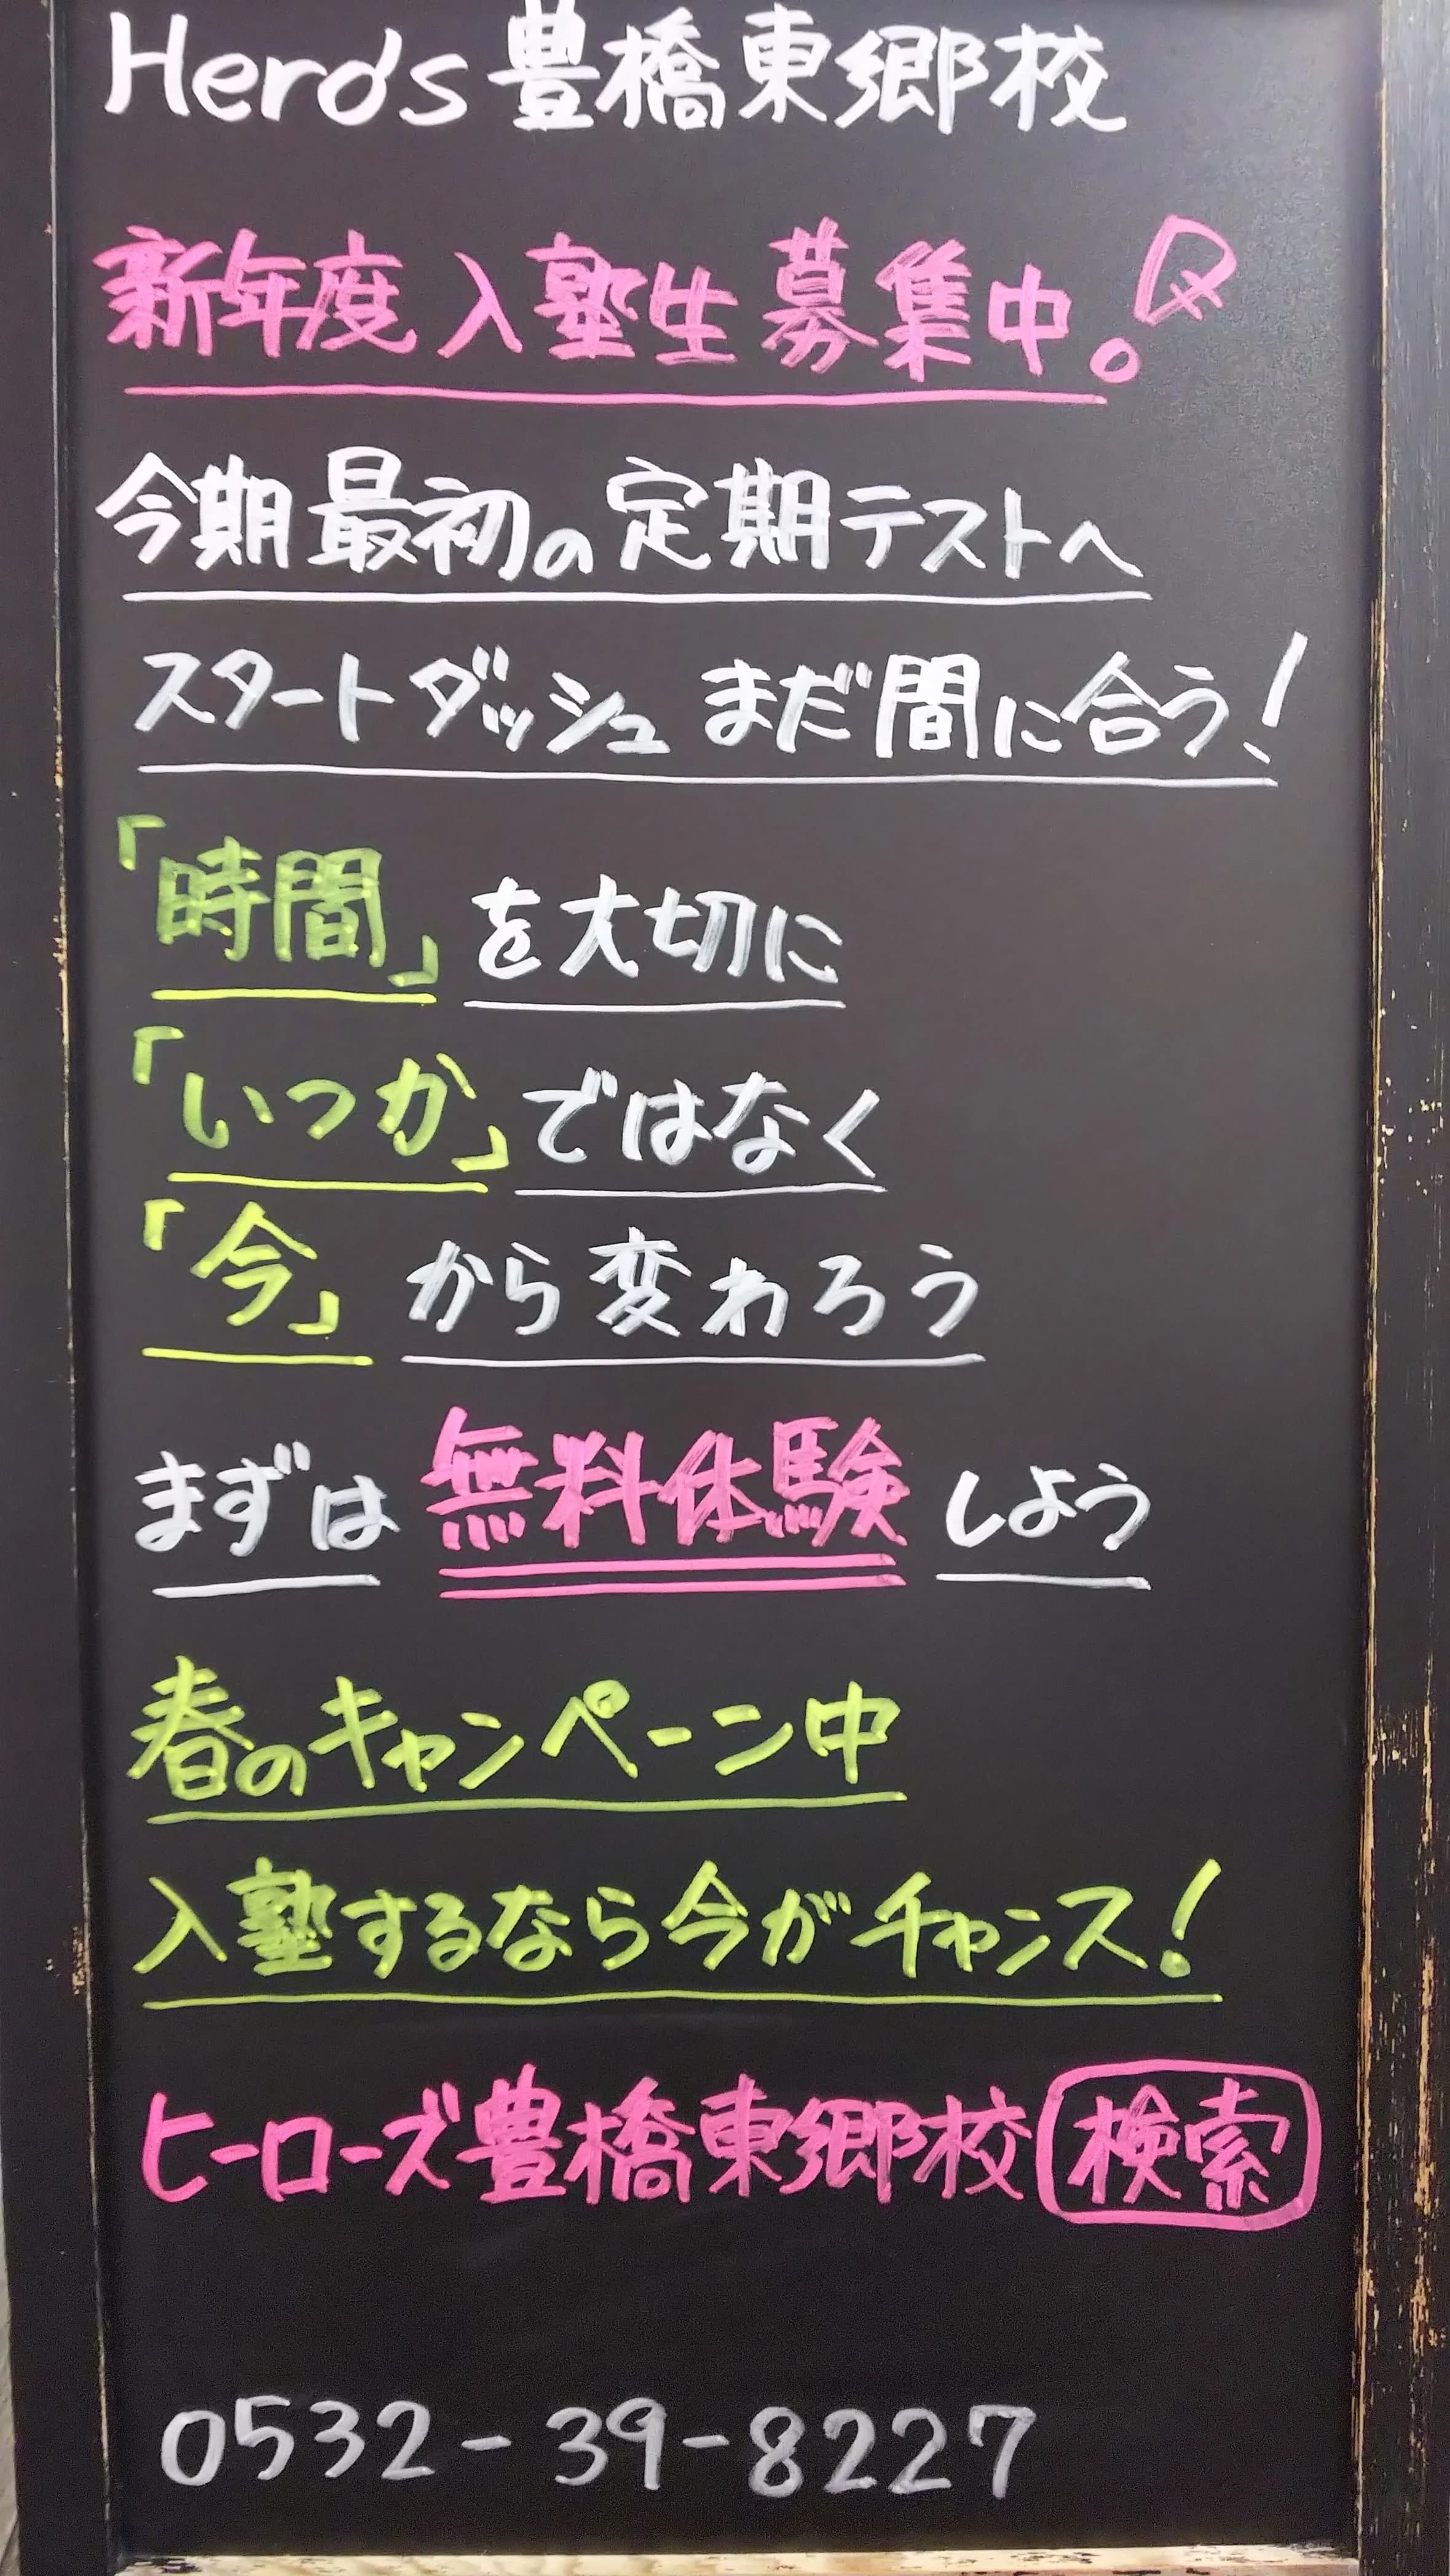 Hero's 豊橋東郷校
新年度 入塾生 募集中。
今期最初の定期テストへ
スタートダッシュ まだ間に合う!
「時間」を大切に
「いつか」ではなく
「今」から変わろう
まずは 無料体験 しよう
春のキャンペーン中
入塾するなら今がチャンス!
ヒーローズ豊橋東郷校 検索
0532-39-8227